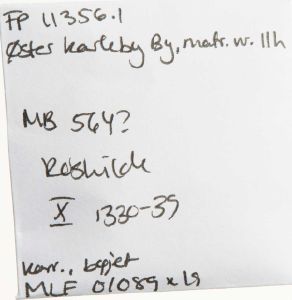 FP 11356.1
Øster Karleby By, matr. nr. 11h
MB 564?
Roskilde
X 1330-39
korr., bøjet
MLF 01089 x 19